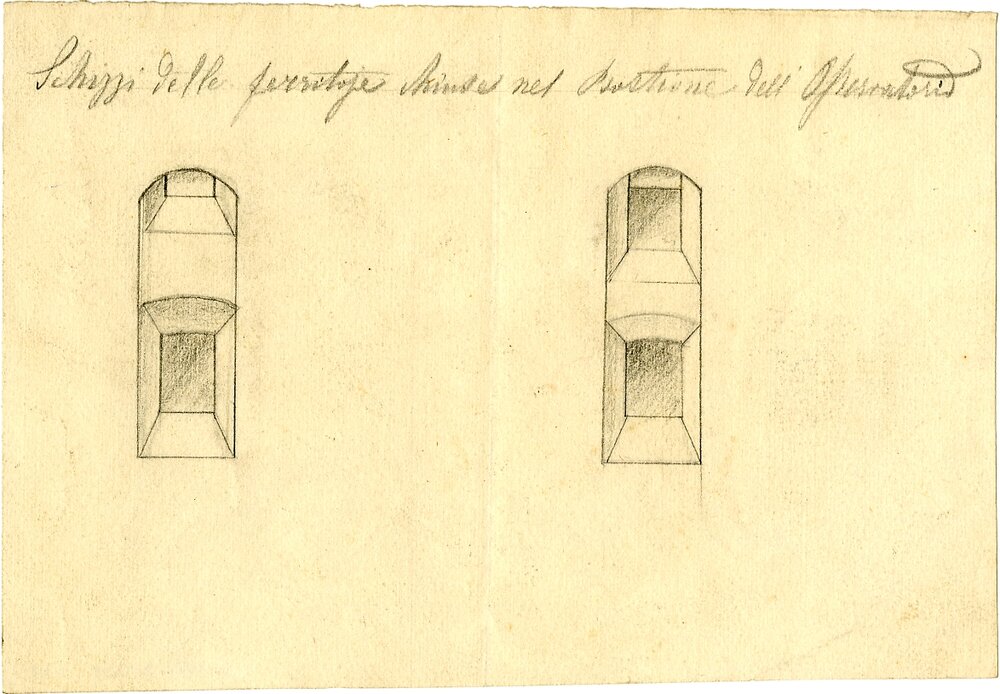 Schizzi delle ferritoje chiuse nel Bastione dell' Osservatorio